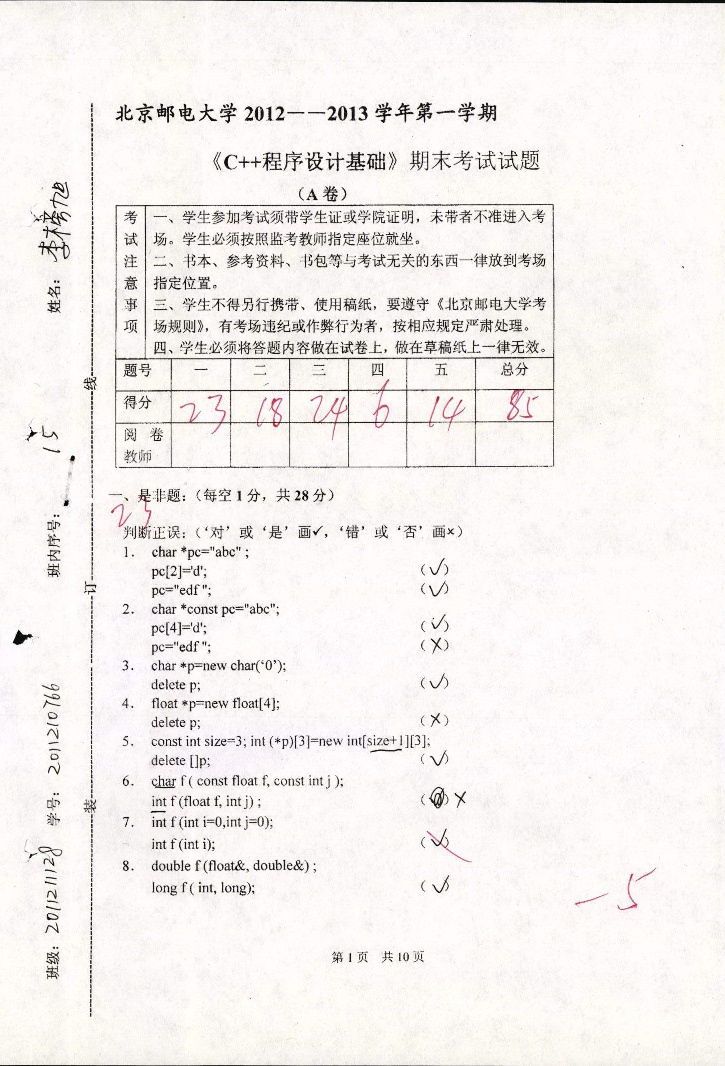 北京邮电大学2012——2013学年第一学期
《C++程序设计基础》期末考试试题
（A卷）
考试注意事项
一、学生参加考试须带学生证或学院证明，未带者不准进入考
场。学生必须按照监考教师指定座位就坐。
二、书本、参考资料、书包等与考试无关的东西一律放到考场
指定位置。
三、学生不得另行携带、使用稿纸，要遵守《北京邮电大学考
场规则》，有考场违纪或作弊行为者，按相应规定严肃处理。
四、学生必须将答题内容做在试卷上，做在草稿纸上一律无效。
题号 一 二 三 四 五 总分
得分 23 18 24 6 14 85
阅卷
教师
一、是非题：（每空1分，共28分）
23
判断正误：（‘对’或‘是’画✓，‘错’或‘否’画×）
1. char *pc="abc" ;
pc[2]='d'; (✓)
pc="edf "; (✓)
2. char *const pc="abc";
pc[4]='d'; (✓)
pc="edf "; (×)
3. char *p=new char(‘0’);
delete p; (✓)
4. float *p=new float[4];
delete p; (×)
5. const int size=3; int (*p)[3]=new int[size+1][3];
delete []p; (✓)
6. char f ( const float f, const int j );
int f (float f, int j) ; ( ) ×
7. int f (int i=0,int j=0);
int f (int i); (✓)
8. double f (float&, double&) ;
long f ( int, long); (✓)
-5
第1页 共10页
姓名：
班内序号： 15
学号： 2011210766
班级： 2011211128
线
订
装